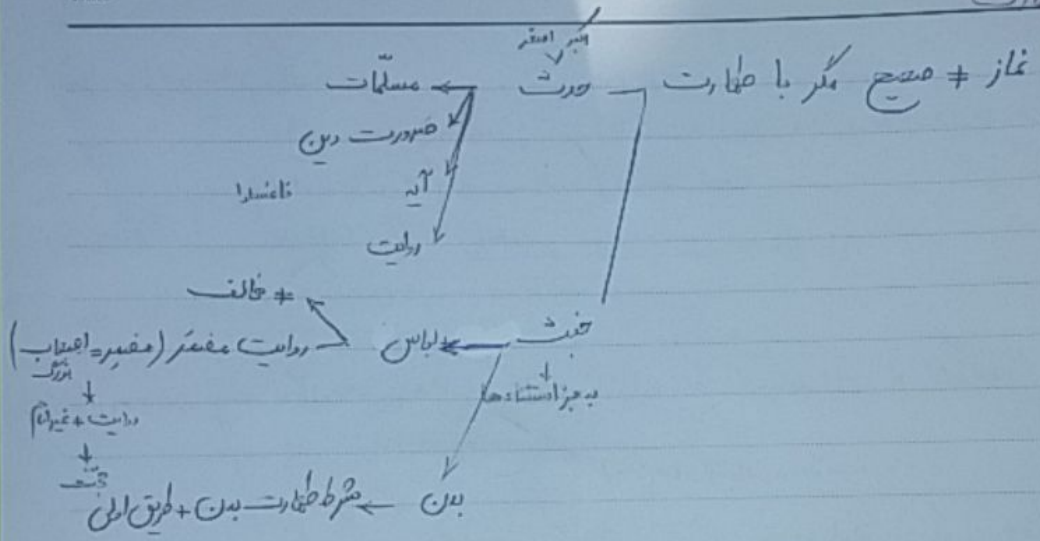 اکبر اصغر
نماز ≠ صحیح مگر با طهارت حدث ← مسلّمات
ضرورت دین
آیه فاغسلوا
روایت
≠ مخالف
خبث ← لباس روایت مفسَّر (مفسِر = اصحاب بزرگ)
به جز استثناءها
روایت + غیر امام
حجّت
بدن ← شرط طهارت بدن + طریق اولی